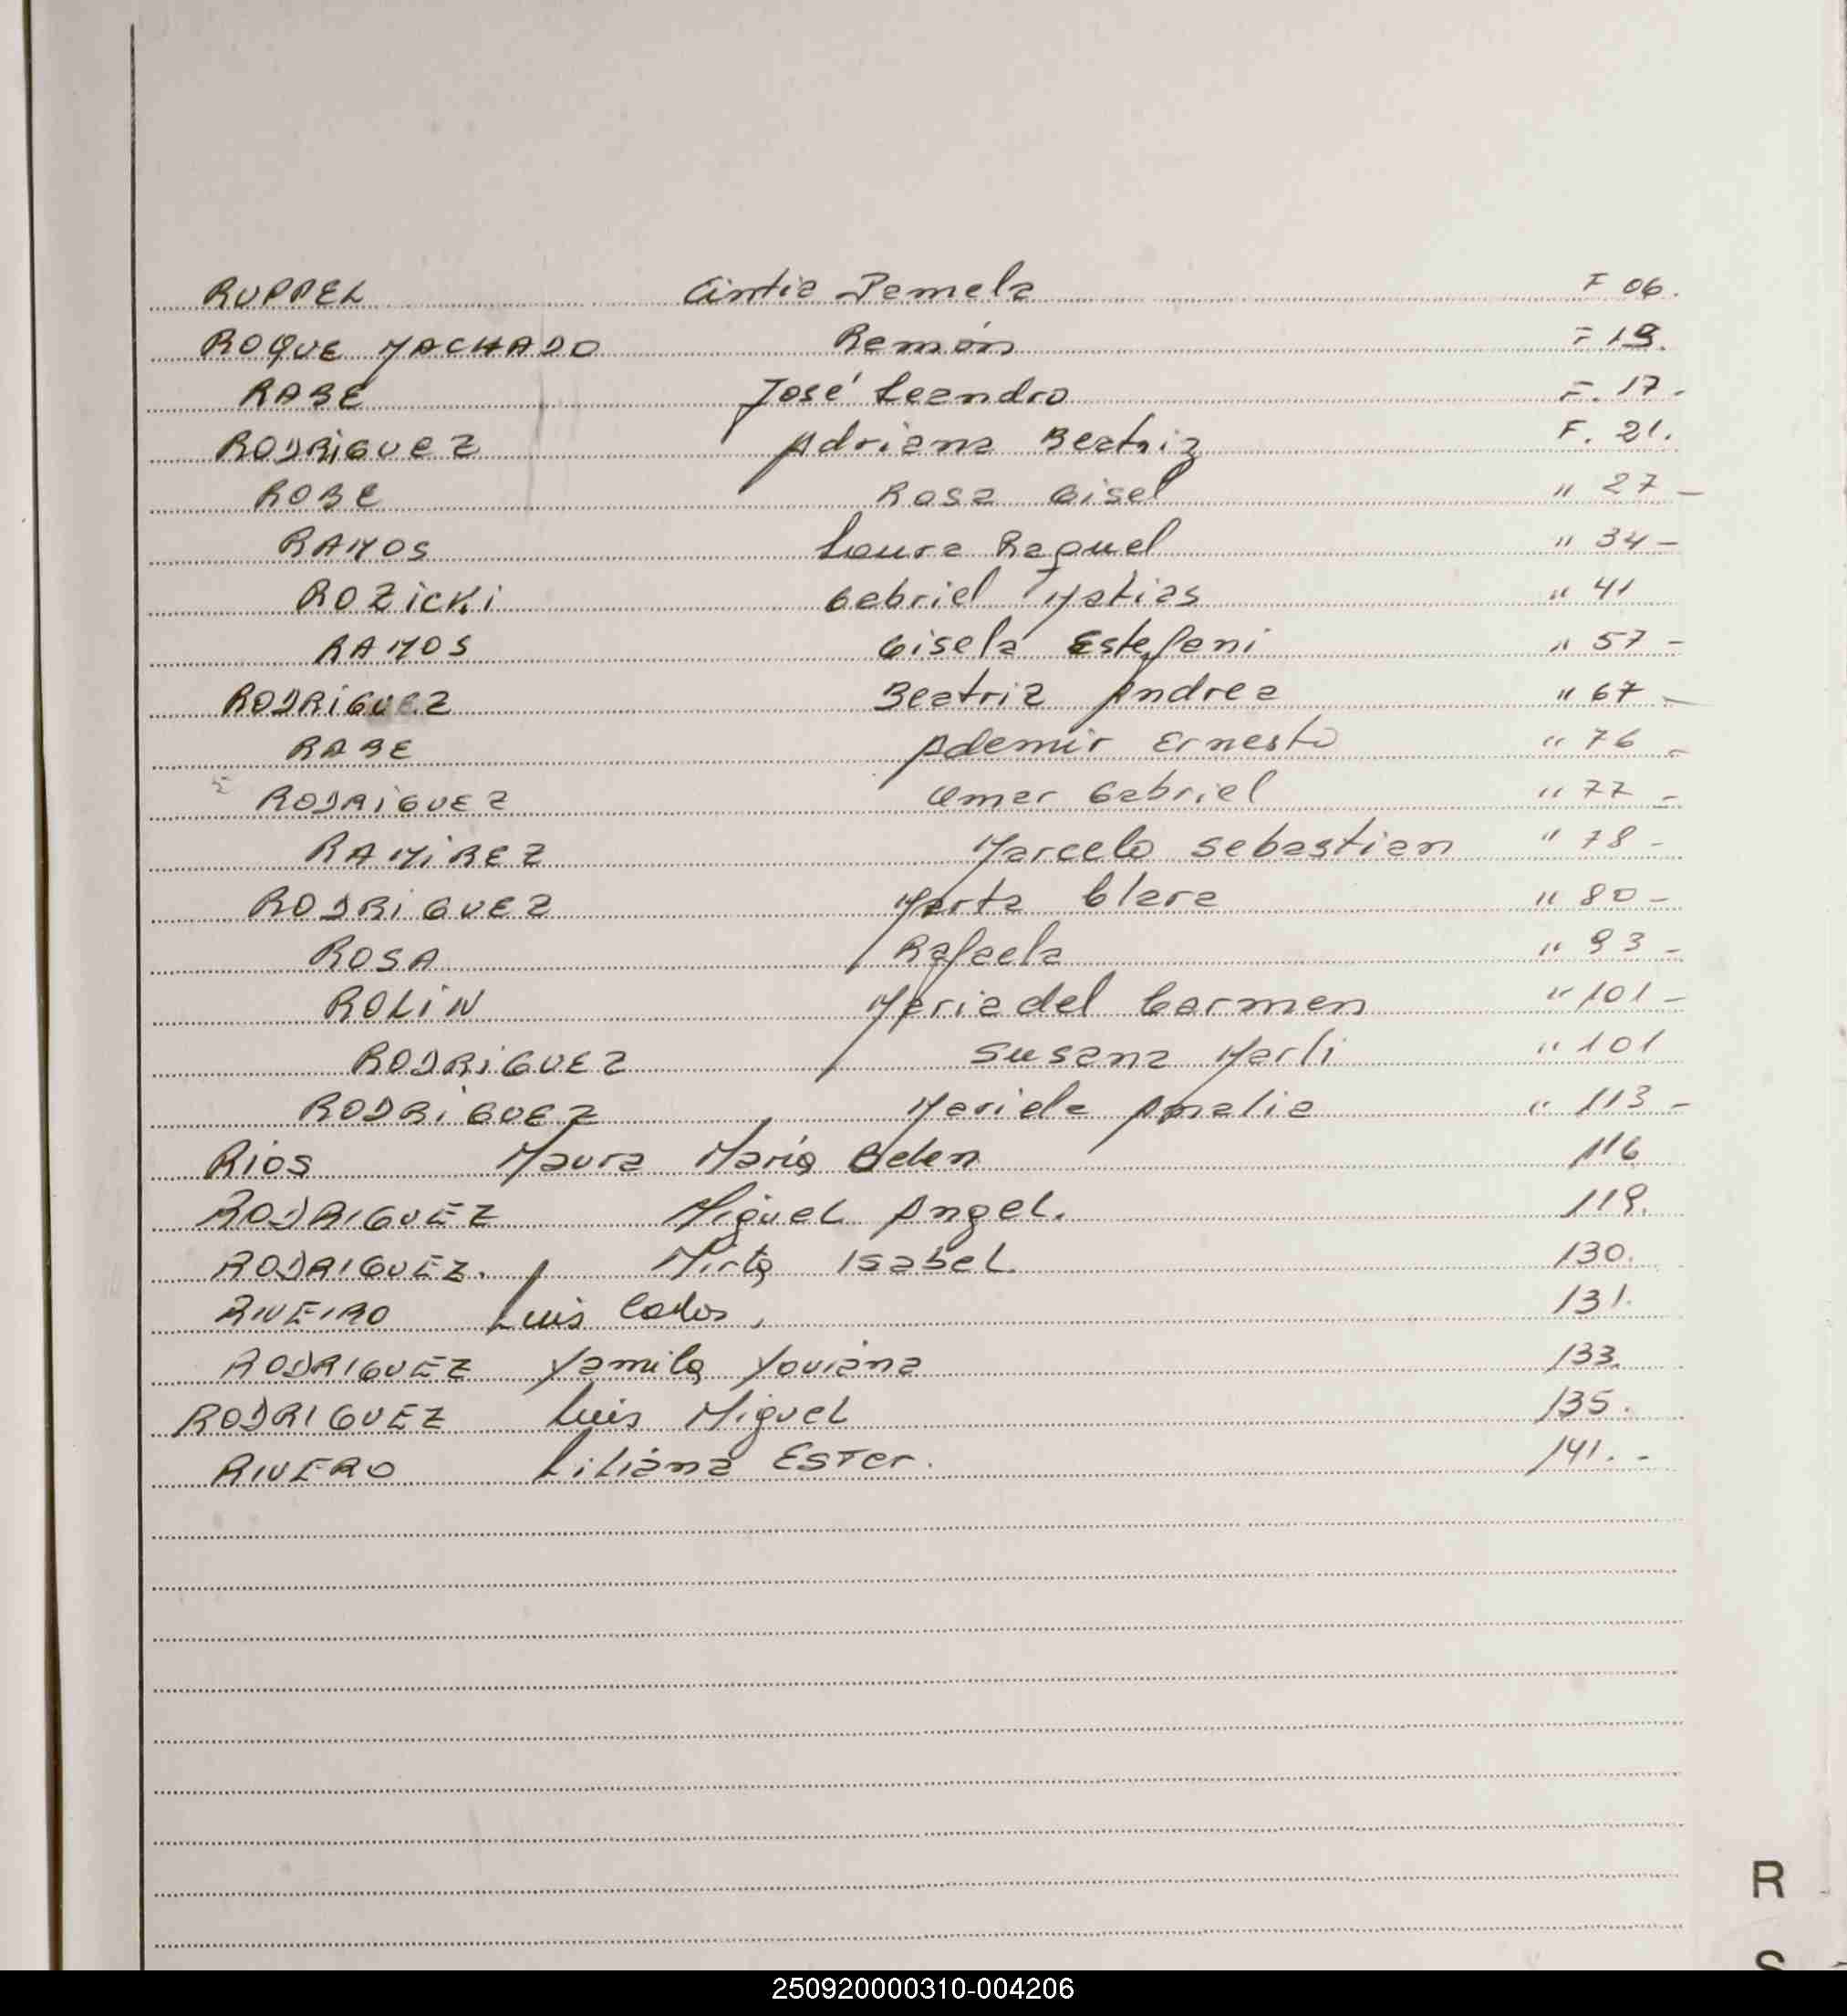 RUPPEL Cintia Pamela F 06.
ROQUE MACHADO Ramón F 19.
RABE José Leandro F. 17 -
RODRIGUEZ Adriana Beatriz F. 21.
ROBE Rosa Gisel " 27 -
RAMOS Laura Raquel " 34 -
ROZICKI Gabriel Matias " 41
RAMOS Gisela Estefani " 57 -
RODRIGUEZ Beatriz Andrea " 67 -
RABE Ademir Ernesto " 76 -
RODRIGUEZ Omar Gabriel " 77 -
RAMIREZ Marcelo Sebastian " 78 -
RODRIGUEZ Marta Clara " 80 -
ROSA Rafaela " 93 -
ROLIN Maria del Carmen " 101 -
RODRIGUEZ Susana Marli " 101
RODRIGUEZ Mariela Amalia " 113 -
RIOS Maura María Belen 116
RODRIGUEZ Miguel Angel. 119.
RODRIGUEZ. Mirta Isabel 130.
RIVEIRO Luis Carlos, 131.
RODRIGUEZ Yamila Yoviana 133.
RODRIGUEZ Luis Miguel 135.
RIVERO Liliana Ester. 141. -
R
S
250920000310-004206